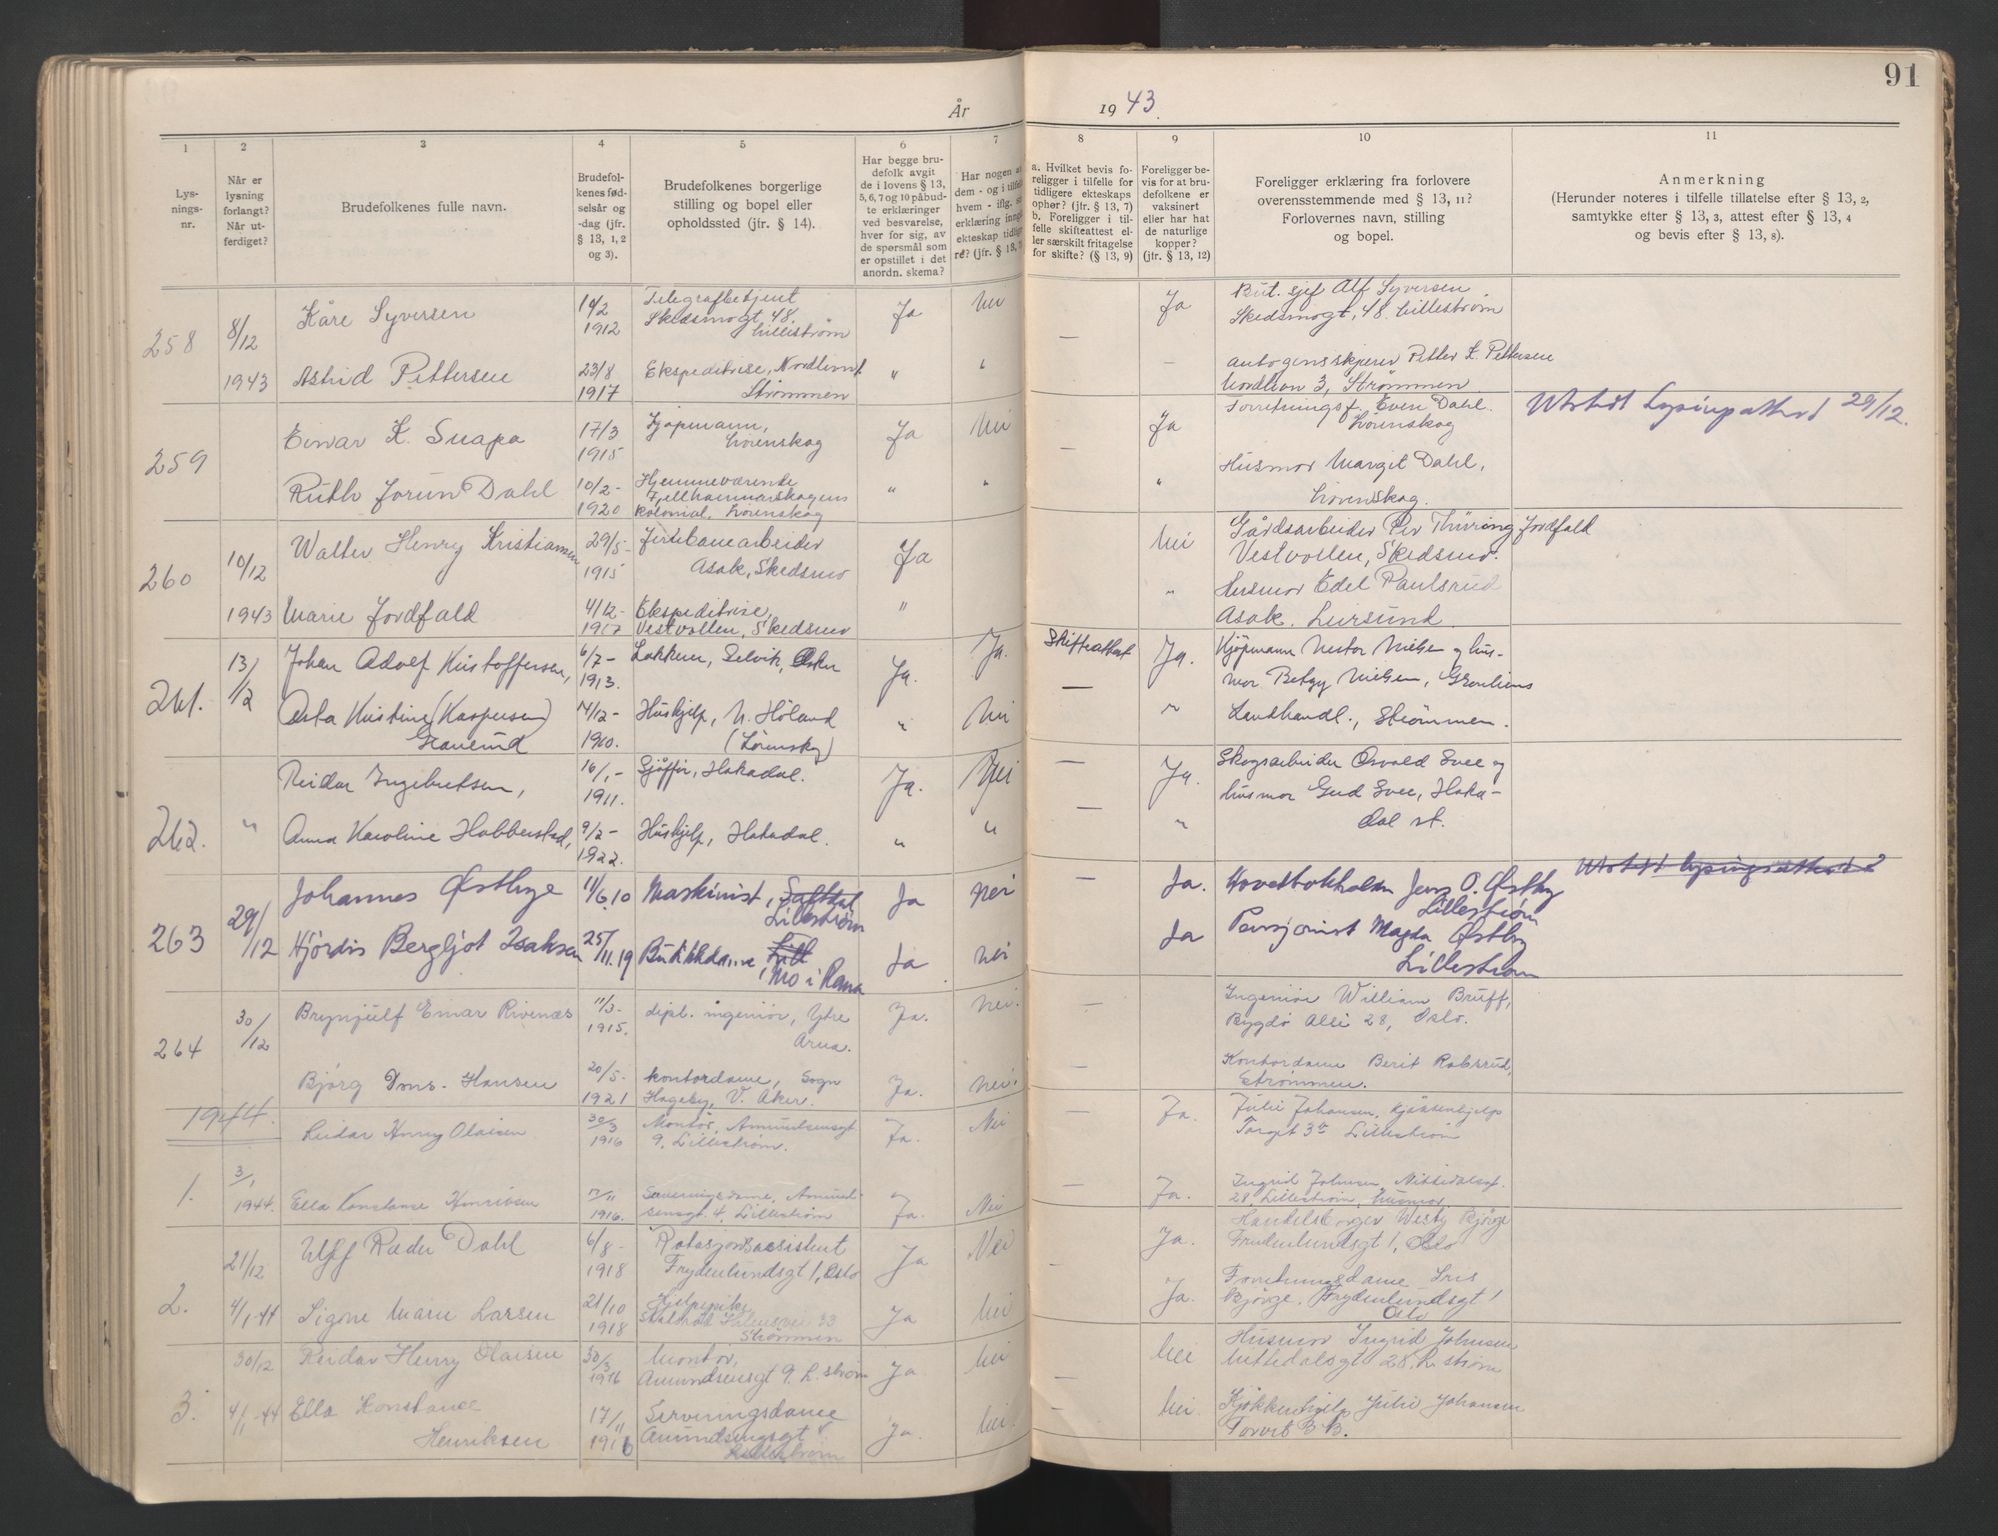 91
År 1943.
1
2
3
4
5
6
7
8
9
10
11
Lys-
nings-
nr.
Når er
lysning
forlangt?
Når ut-
ferdiget?
Brudefolkenes fulle navn.
Brudefol-
kenes fød-
selsår og
-dag (jfr.
§ 13, 1, 2
og 3).
Brudefolkenes borgerlige
stilling og bopel eller
opholdssted (jfr. § 14).
Har begge bru-
defolk avgit
de i lovens § 13,
5, 6, 7 og 10 påbud-
te erklæringer
ved besvarelse,
hver for sig, av
de spørsmål som
er opstillet i det
anordn. skema?
Har nogen a
dem - og i tilfel
hvem - iflg. s
erklæring inng
ekteskap tidlig
re? (jfr. § 13,
a. Hvilket bevis fo-
religger i tilfelle for
tidligere ekteskaps
ophør? (jfr. § 13, 7)
b. Foreligger i til-
felle skifteattest el-
ler særskilt fritagelse
for skifte? (§ 13, 9)
Foreligger be-
vis for at bru-
defolkene er
vaksinert
eller har hat
de naturlige
kopper?
(jfr. § 13, 12)
Foreligger erklæring fra forlovere
overensstemmende med § 13, 11?
Forlovernes navn, stilling
og bopel.
Anmerkning
(Herunder noteres i tilfelle tillatelse efter § 13, 2,
samtykke efter § 13, 3, attest efter § 13, 4
og bevis efter § 13, 8).
258
8/12
1943
Kåre Syversen
14/2
1912
Telegrafbetjent
Skedsmogt, 48.
Lillestrøm
Ja
Nei
Ja
But. sjef Alf Syversen
Skedsmogt, 48. Lillestrøm
Astrid Pettersen
23/8
1917
Ekspeditrise, Nordlivn.
Strømmen
"
"
—
-
autogenskjærer Petter K. Pettersen
Nordlivn 3, Strømmen
259
Einar K. Snapa
17/3
1915
Kjøpmann,
Lørenskog
Ja
Nei
—
Ja
Forretningsf. Even Dahl.
Lørenskog
Utstedt Lysingsattest 29/12.
Ruth Jorun Dahl
10/2-
1920
Hjemmeværende
Fjellhammarskogens
Kolonial, Lørenskog
"
"
"
Husmor Margit Dahl,
Lørenskog.
260
10/12
1943
Walter Henry Kristiansen
29/5-
1915
Jernbanearbeider
Asak, Skedsmo
Ja
Nei
Gårdsarbeider Per Thüring Jordfald
Vestvollen, Skedsmo.
Marie Jordfald
4/12-
1917
Ekspeditrise,
Vestvollen, Skedsmo
"
"
Husmor Edel Paulsrud
Asak. Leirsund.
261.
13/12
Johan Adolf Kristoffersen,
6/7-
1913.
Lakkerer, Selvik,
Ja.
Ja.
Skifteattest
Ja.
Kjøpmann Nestor Nielsen og hus-
mor Betzy Nielsen,
Asta Kristine (Kaspersen)
Graverud
14/12-
1910.
Hushjelp, N. Høland
(Lørenskog)
"
Nei
—
"
Landhandl., Strømmen.
262.
"
Reidar Ingebretsen,
16/1-
1911.
Sjåffør, Hakadal.
Ja.
Nei
Ja.
Skogsarbeider Osvald Svee og
husmor Gud Svee, Haka-
dal st.
Anna Karoline Habberstad,
9/2-
1922.
Hushjelp, Hakadal.
"
"
—
"
263
29/12
Johannes Østbye
11/6.10
Maskinist,
Lillestrøm
Ja
Nei
—
Ja.
Hovedbokholder Jens O. Østby
Lillestrøm
Utstedt lysingsattest
Hjørdis Bergljot Isaksen
25/11.19
Butikkdame, Lill
Mo i Rana
Ja
Nei
Ja
Pensjonist Magda Østby
Lillestrøm
264
30/12
Brynjulf Einar Rivenæs
11/3-
1915.
dipl. ingeniør, Ytre
Arna.
Ja.
Nei.
—
Ingeniør William Bruff,
Bygdø Alle 28, Oslo.
Bjørg Dons-Hansen
20/5-
1921
kontordame, Sogn
Hageby, V. Aker.
Ja.
Nei.
—
Kontordame Berit Rolsrud,
Strømmen.
1944.
1.
3/1
1944.
Reidar Henry Olaisen
30/3
1916
Montør, Amundsensgt.
9, Lillestrøm.
Ja.
Nei
—
Ja.
Julie Johansen, kjøkkenhjelp
Torget 3B Lillestrøm
Ella Konstanse Henriksen
17/11
1916.
Serveringsdame, Amund-
sensgt. 4, Lillestrøm
Ja.
Nei
—
Ja.
Ingrid Johnsen, Nittedalsgt.
28, Lillestrøm, husmor.
2.
21/12
4/1-44
Ulf Ræder Dahl
6/8-
1918
Rotasjonsassistent
Frydenlundsgt 1, Oslo
Ja
Nei
Ja.
Handelsborger Westy Bjørge
Frydenlundsgt 1, Oslo
Signe Marie Larsen
21/10
1918
Hjelpepike
33
Strømmen
Ja
Nei
Ja.
Forretningsdame Iris
Bjørge. Frydenlundsgt 1
Oslo
3.
30/12
4/1-44
Reidar Henry Olaisen
30/3
1916
Montør,
Amundsensgt 9. L.strøm
Ja
Nei
—
Nei
Husmor Ingrid Johnsen
Nittedalsgt 28. L.strøm
Ella Konstanse
Henriksen
17/11
1916
Serveringsdame
Amundsensgt 4
Lillestrøm
Ja.
Nei.
—
Nei
Kjøkkenhjelp Julie Johansen
Torvet 3 B.